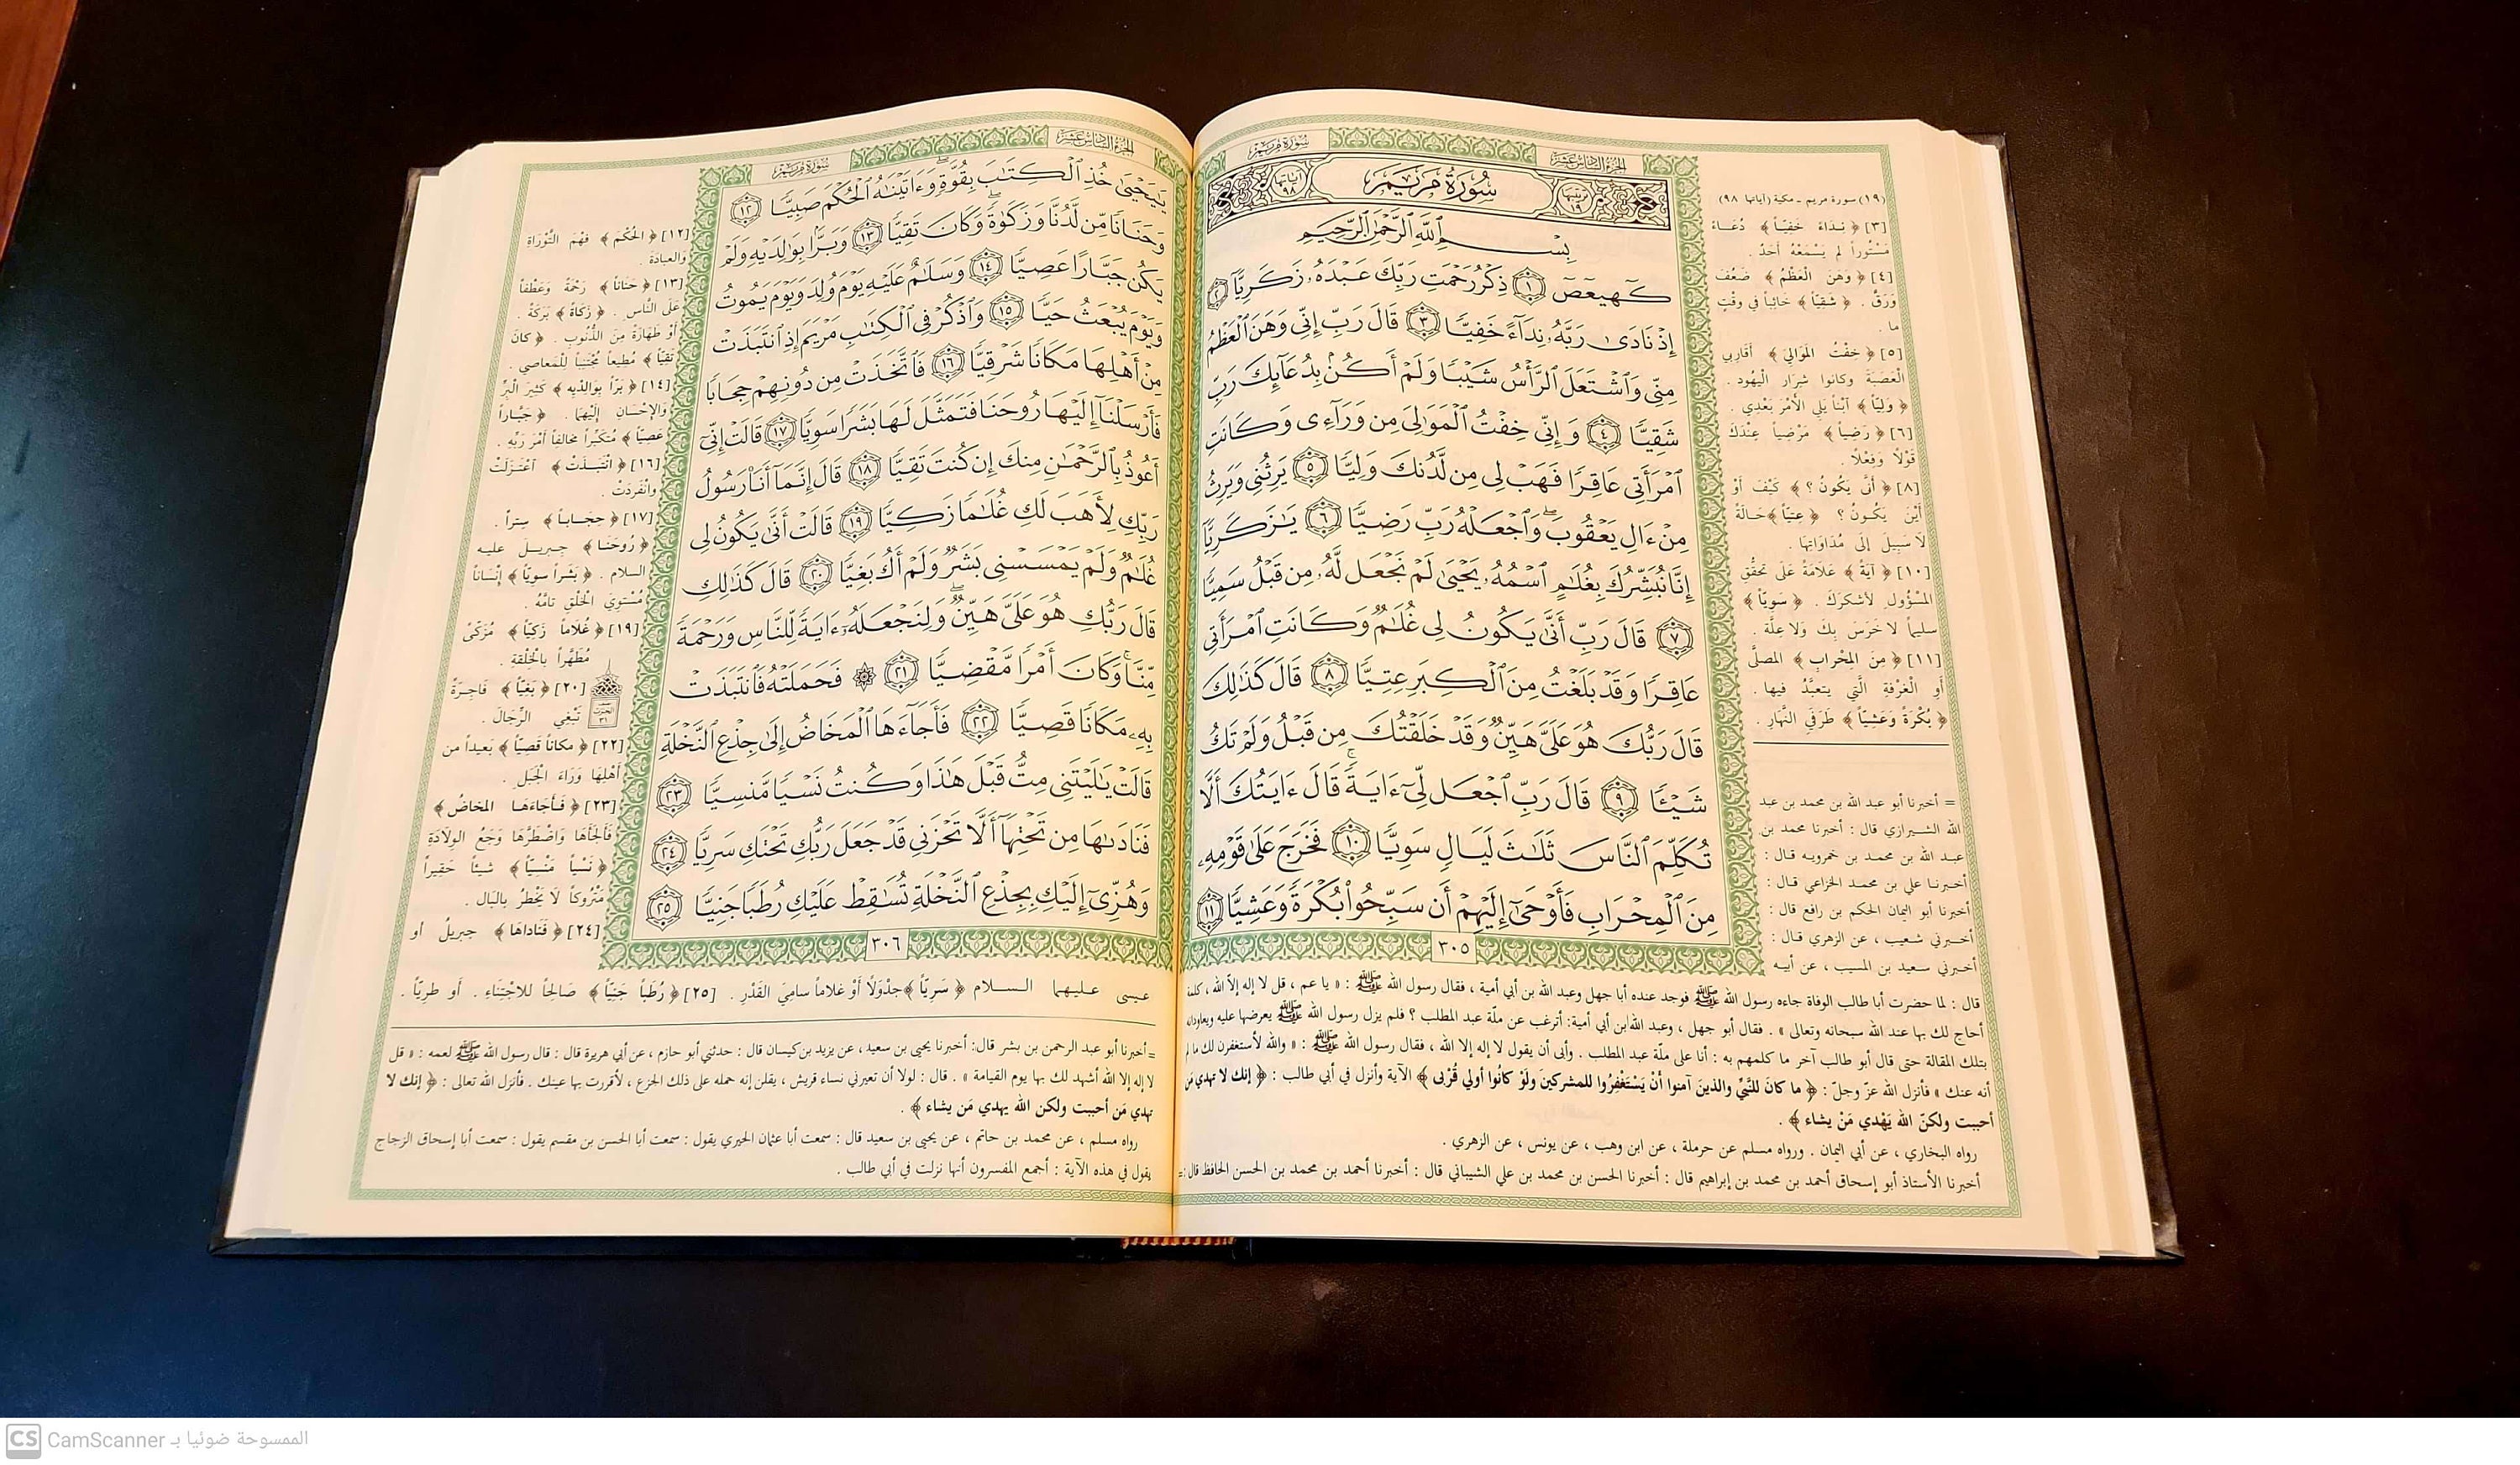 سُورَةُ مَرْيَمَ
الجُزْءُ السَّادِسَ عَشَرَ
ترتيبها ١٩
سُورَةُ مَرْيَمَ
آياتها ٩٨
بِسْمِ ٱللَّهِ ٱلرَّحْمَٰنِ ٱلرَّحِيمِ
كٓهيعٓصٓ ١ ذِكْرُ رَحْمَتِ رَبِّكَ عَبْدَهُۥ زَكَرِيَّآ ٢
إِذْ نَادَىٰ رَبَّهُۥ نِدَآءً خَفِيًّا ٣ قَالَ رَبِّ إِنِّى وَهَنَ ٱلْعَظْمُ
مِنِّى وَٱشْتَعَلَ ٱلرَّأْسُ شَيْبًا وَلَمْ أَكُنۢ بِدُعَآئِكَ رَبِّ
شَقِيًّا ٤ وَإِنِّى خِفْتُ ٱلْمَوَٰلِىَ مِن وَرَآءِى وَكَانَتِ
ٱمْرَأَتِى عَاقِرًا فَهَبْ لِى مِن لَّدُنكَ وَلِيًّا ٥ يَرِثُنِى وَيَرِثُ
مِنْ ءَالِ يَعْقُوبَ ۖ وَٱجْعَلْهُ رَبِّ رَضِيًّا ٦ يَٰزَكَرِيَّآ
إِنَّا نُبَشِّرُكَ بِغُلَٰمٍ ٱسْمُهُۥ يَحْيَىٰ لَمْ نَجْعَل لَّهُۥ مِن قَبْلُ سَمِيًّا
٧ قَالَ رَبِّ أَنَّىٰ يَكُونُ لِى غُلَٰمٌ وَكَانَتِ ٱمْرَأَتِى
عَاقِرًا وَقَدْ بَلَغْتُ مِنَ ٱلْكِبَرِ عِتِيًّا ٨ قَالَ كَذَٰلِكَ
قَالَ رَبُّكَ هُوَ عَلَىَّ هَيِّنٌ وَقَدْ خَلَقْتُكَ مِن قَبْلُ وَلَمْ تَكُ
شَيْـًٔا ٩ قَالَ رَبِّ ٱجْعَل لِّىٓ ءَايَةً ۚ قَالَ ءَايَتُكَ أَلَّا
تُكَلِّمَ ٱلنَّاسَ ثَلَٰثَ لَيَالٍ سَوِيًّا ١٠ فَخَرَجَ عَلَىٰ قَوْمِهِۦ
مِنَ ٱلْمِحْرَابِ فَأَوْحَىٰٓ إِلَيْهِمْ أَن سَبِّحُوا۟ بُكْرَةً وَعَشِيًّا ١١
٣٠٥
(١٩) سورة مريم - مكية (آياتها ٩٨)
[٣] ﴿ نِدَاءً خَفِيّاً ﴾ دُعَاءً
مَسْتُوراً لم يَسْمَعْهُ أَحَدٌ .
[٤] ﴿ وَهَنَ الْعَظْمُ ﴾ ضَعُفَ
وَرَقَّ . ﴿ شَقِيّاً ﴾ خَائِباً في وقْتٍ
ما .
[٥] ﴿ خِفْتُ المَوَاليَ ﴾ أَقَارِبي
الْعَصَبَةَ وكانوا شِرَارَ الْيَهُود .
﴿ وَلِيّاً ﴾ ابْناً يَلِي الأَمْرَ بَعْدِي .
[٦] ﴿ رَضِيّاً ﴾ مَرْضِياً عِنْدَكَ
قَوْلاً وَفِعْلاً .
[٨] ﴿ أَنَّى يَكُونُ ؟ ﴾ كَيْفَ أَوْ
أَيْنَ يَكُونُ ؟ ﴿ عِتِيّاً ﴾ حَالَةً
لاَ سَبِيلَ إِلَى مُدَاوَاتِهَا .
[١٠] ﴿ آيَةً ﴾ عَلاَمَةً عَلَى تَحَقُّقِ
المَسْؤُولِ لأَشْكُرَكَ . ﴿ سَوِيّاً ﴾
سليماً لا خَرَسَ بِكَ وَلاَ عِلَّة .
[١١] ﴿ مِنَ المِحْرَابِ ﴾ المصلَّى
أَوِ الْغُرْفَةِ الَّتِي يتعبَّدُ فيها .
﴿ بُكْرَةً وَعَشِيّاً ﴾ طَرَفَيِ النَّهَارِ .
= أخبرنا أبو عبد الله بن محمد بن عبد
الله الشيرازي قال : أخبرنا محمد بن
عبد الله بن محمد بن خمرويه قال :
أخبرنا علي بن محمد الخزاعي قال :
أخبرنا أبو اليمان الحكم بن رافع قال :
أخبرني شعيب ، عن الزهري قال :
أخبرني سعيد بن المسيب ، عن أبيه
قال : لما حضرت أبا طالب الوفاة جاءه رسول الله ﷺ فوجد عنده أبا جهل وعبد الله بن أبي أمية ، فقال رسول الله ﷺ : « يا عم ، قل لا إله إلاّ الله ، كلمة
أحاج لك بها عند الله سبحانه وتعالى » . فقال أبو جهل ، وعبد الله بن أبي أمية: أترغب عن ملّة عبد المطلب ؟ فلم يزل رسول الله ﷺ يعرضها عليه ويعاودانه
بتلك المقالة حتى قال أبو طالب آخر ما كلمهم به : أنا على ملّة عبد المطلب . وأبى أن يقول لا إله إلا الله ، فقال رسول الله ﷺ : « والله لأستغفرن لك ما لم
أنه عنك » فأنزل الله عزّ وجلّ : ﴿ ما كانَ للنَّبيِّ والذينَ آمنوا أنْ يَسْتَغْفِرُوا للمشركينَ ولَوْ كانُوا أولي قُرْبى ﴾ الآية وأنزل في أبي طالب : ﴿ إنك لا تهدي مَن
أحببت ولكنّ الله يَهْدي مَنْ يشاء ﴾ .
رواه البخاري ، عن أبي اليمان . ورواه مسلم عن حرملة ، عن ابن وهب ، عن يونس ، عن الزهري .
أخبرنا الأستاذ أبو إسحاق أحمد بن محمد بن إبراهيم قال : أخبرنا الحسن بن محمد بن علي الشيباني قال : أخبرنا أحمد بن محمد بن الحسن الحافظ قال : =
الجُزْءُ السَّادِسَ عَشَرَ
سُورَةُ مَرْيَمَ
يَٰيَحْيَىٰ خُذِ ٱلْكِتَٰبَ بِقُوَّةٍ ۖ وَءَاتَيْنَٰهُ ٱلْحُكْمَ صَبِيًّا ١٢
وَحَنَانًا مِّن لَّدُنَّا وَزَكَوٰةً ۖ وَكَانَ تَقِيًّا ١٣ وَبَرًّۢا بِوَٰلِدَيْهِ وَلَمْ
يَكُن جَبَّارًا عَصِيًّا ١٤ وَسَلَٰمٌ عَلَيْهِ يَوْمَ وُلِدَ وَيَوْمَ يَمُوتُ
وَيَوْمَ يُبْعَثُ حَيًّا ١٥ وَٱذْكُرْ فِى ٱلْكِتَٰبِ مَرْيَمَ إِذِ ٱنتَبَذَتْ
مِنْ أَهْلِهَا مَكَانًا شَرْقِيًّا ١٦ فَٱتَّخَذَتْ مِن دُونِهِمْ حِجَابًا
فَأَرْسَلْنَآ إِلَيْهَا رُوحَنَا فَتَمَثَّلَ لَهَا بَشَرًا سَوِيًّا ١٧ قَالَتْ إِنِّىٓ
أَعُوذُ بِٱلرَّحْمَٰنِ مِنكَ إِن كُنتَ تَقِيًّا ١٨ قَالَ إِنَّمَآ أَنَا۠ رَسُولُ
رَبِّكِ لِأَهَبَ لَكِ غُلَٰمًا زَكِيًّا ١٩ قَالَتْ أَنَّىٰ يَكُونُ لِى
غُلَٰمٌ وَلَمْ يَمْسَسْنِى بَشَرٌ وَلَمْ أَكُ بَغِيًّا ٢٠ قَالَ كَذَٰلِكِ
قَالَ رَبُّكِ هُوَ عَلَىَّ هَيِّنٌ ۖ وَلِنَجْعَلَهُۥٓ ءَايَةً لِّلنَّاسِ وَرَحْمَةً
مِّنَّا ۚ وَكَانَ أَمْرًا مَّقْضِيًّا ٢١ ۞ فَحَمَلَتْهُ فَٱنتَبَذَتْ
بِهِۦ مَكَانًا قَصِيًّا ٢٢ فَأَجَآءَهَا ٱلْمَخَاضُ إِلَىٰ جِذْعِ ٱلنَّخْلَةِ
قَالَتْ يَٰلَيْتَنِى مِتُّ قَبْلَ هَٰذَا وَكُنتُ نَسْيًا مَّنسِيًّا ٢٣
فَنَادَىٰهَا مِن تَحْتِهَآ أَلَّا تَحْزَنِى قَدْ جَعَلَ رَبُّكِ تَحْتَكِ سَرِيًّا ٢٤
وَهُزِّىٓ إِلَيْكِ بِجِذْعِ ٱلنَّخْلَةِ تُسَٰقِطْ عَلَيْكِ رُطَبًا جَنِيًّا ٢٥
٣٠٦
[١٢] ﴿ الحُكْمَ ﴾ فهْمَ التَّوْرَاةِ
وَالعِبادَة .
[١٣] ﴿ حَنَاناً ﴾ رَحْمَةً وَعَطْفاً
عَلَى النَّاس . ﴿ زَكَاةً ﴾ بَرَكَةً .
أَوْ طَهَارَةً مِنَ الذُّنُوبِ . ﴿ كانَ
تَقِيّاً ﴾ مُطِيعاً مُجْتَنِباً لِلْمَعاصي .
[١٤] ﴿ بَرّاً بِوَالِدَيْهِ ﴾ كَثِيرَ الْبِرِّ
وَالإِحْسَانِ إِلَيْهِمَا . ﴿ جَبَّاراً
عَصِيّاً ﴾ مُتَكَبِّراً مُخالِفاً أَمْرَ رَبِّهِ .
[١٦] ﴿ انْتَبَذَتْ ﴾ اعْتَزَلَتْ
وانْفَرَدَتْ .
[١٧] ﴿ حِجَاباً ﴾ سِتراً .
﴿ رُوحَنَا ﴾ جبريلَ عليه
السلام . ﴿ بَشَراً سوِيّاً ﴾ إِنْسَاناً
مُسْتَوِيَ الْخَلْقِ تامَّهُ .
[١٩] ﴿ غُلاَماً زَكِيّاً ﴾ مُزَكّى
مُطَهَّراً بالخِلْقةِ .
[٢٠] ﴿ بَغِيّاً ﴾ فَاجِرَةً
تَبْغِي الرِّجَالَ .
الحزب
٣١
[٢٢] ﴿ مكاناً قَصِيّاً ﴾ بَعيداً من
أَهْلِهَا وَرَاءَ الْجَبَلِ .
[٢٣] ﴿ فَأَجَاءَهَا المخاضُ ﴾
فَأَلْجَأَهَا وَاضْطَرَّهَا وَجَعُ الوِلاَدَةِ
﴿ نَسْياً مَنْسِيّاً ﴾ شيئاً حَقِيراً
مَتْرُوكاً لاَ يَخْطُر بِالبَال .
[٢٤] ﴿ فَنَادَاهَا ﴾ جبريلُ أو
عيسى عليهما السلام ﴿ سَرِيّاً ﴾ جدْوَلاً أَوْ غلاماً سامِيَ القَدْرِ . [٢٥] ﴿ رُطَباً جَنِيّاً ﴾ صَالِحاً للاجْتِنَاءِ . أو طرِيّاً .
= أخبرنا أبو عبد الرحمن بن بشر قال: أخبرنا يحيى بن سعيد ، عن يزيد بن كيسان قال : حدثني أبو حازم ، عن أبي هريرة قال : قال رسول الله ﷺ لعمه : « قل
لا إله إلا الله أشهد لك بها يوم القيامة » . قال : لولا أن تعيرني نساء قريش ، يقلن إنه حمله على ذلك الجزع ، لأقررت بها عينك . فأنزل الله تعالى : ﴿ إنك لا
تهدي مَن أحببت ولكن الله يهدي مَن يشاء ﴾ .
رواه مسلم ، عن محمد بن حاتم ، عن يحيى بن سعيد قال : سمعت أبا عثمان الحيري يقول : سمعت أبا الحسن بن مقسم يقول : سمعت أبا إسحاق الزجاج
يقول في هذه الآية : أجمع المفسرون أنها نزلت في أبي طالب .
CS CamScanner الممسوحة ضوئيا بـ